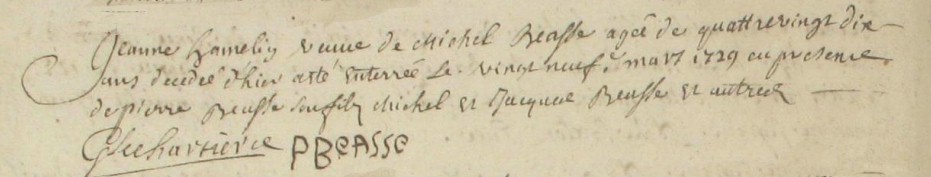 Jeanne hamelin veuve de Michel Beasse agée de quattrevingt dix
ans decedeé d'hier a esté enterreé le vingt neuf.e mars 1729 en presence
de pierre Beasse son fils Michel et Jacques Beasse et autres
PBEASSE